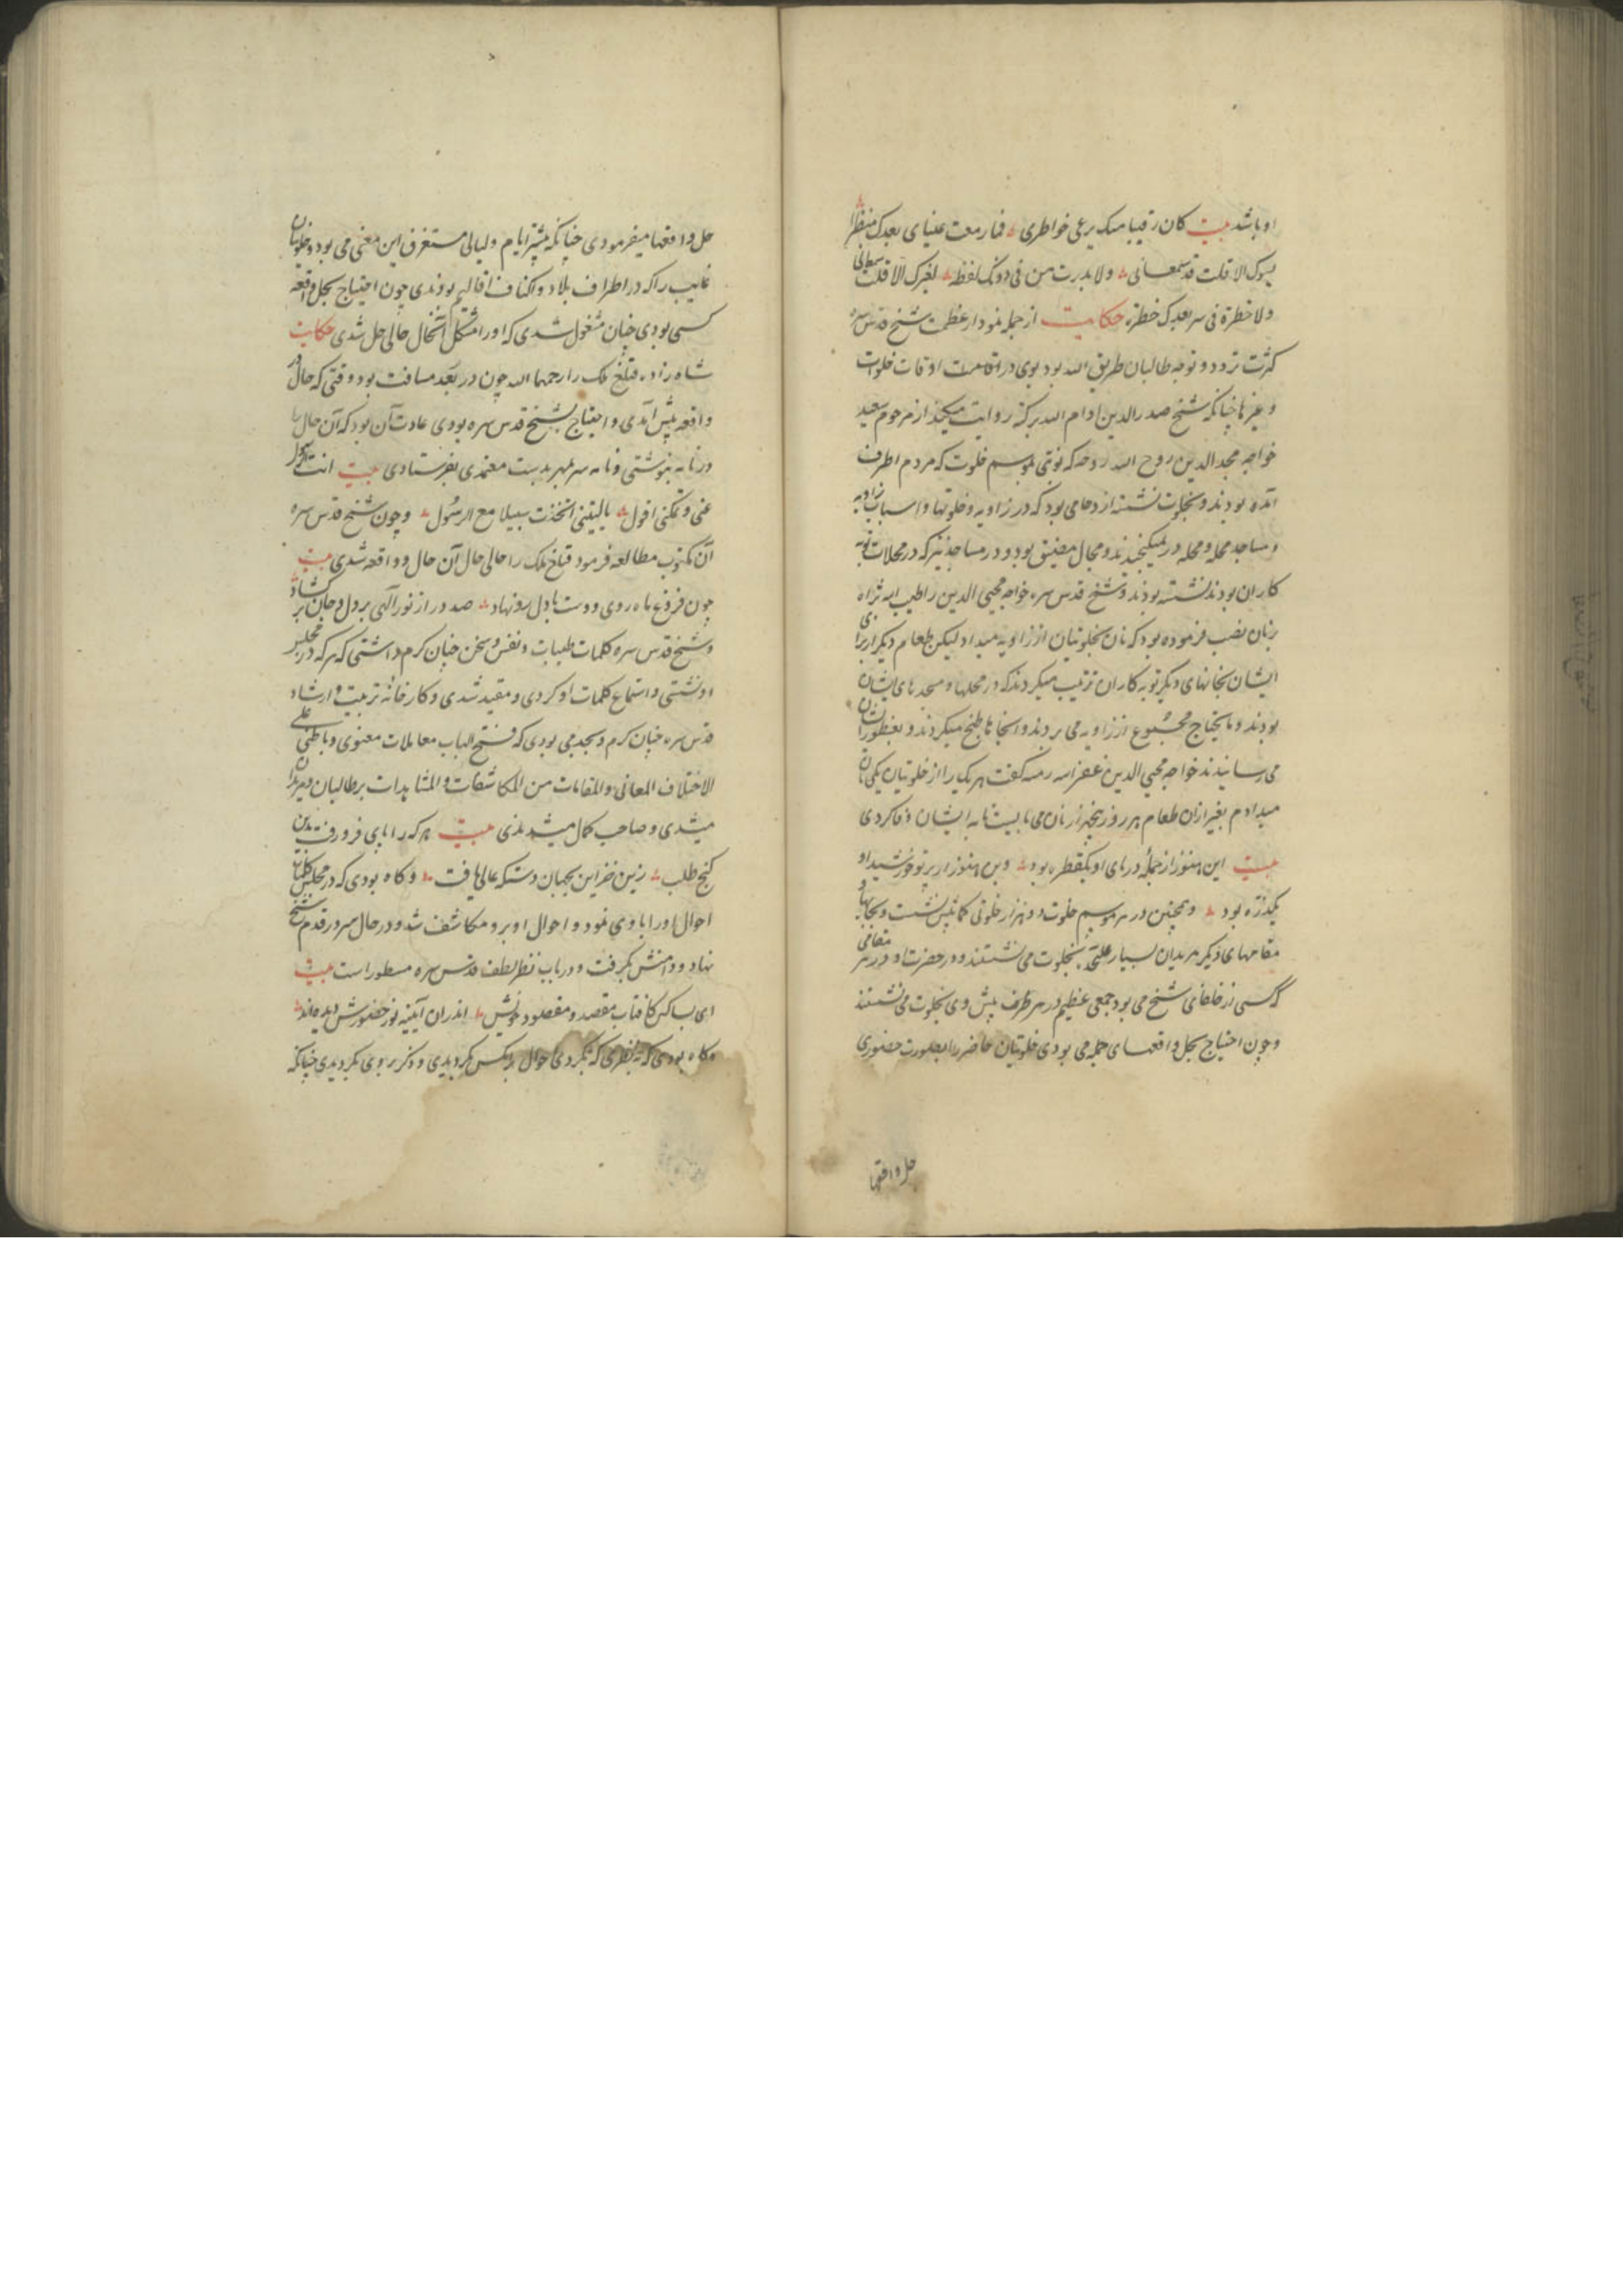 او باشد بیت کان رقیبا منک یرعی خواطری فما رمقت عینای بعدک منظرا
یسوک الا قلت قد رمقانی ولا بدرت من فی دونک لفظه لغیرک الا قلت
ولا خطرة فی سر بعدک خطرة حکایت از جمله نمودار عظمت شیخ قدس سره
کثرت تردد و توجه طالبان طریق الله بود بوی در اقامت اوقات خلوات
و غیرها چنانکه شیخ صدرالدین ادام الله برکته روایت میکند از مرحوم سعید
خواجه مجدالدین روح الله روحه که نوبتی بموسم خلوت که مردم اطراف
آمده بودند و بخلوت نشسته ازدحامی بود که در زاویه و خلوتها و اسباب زاویه
و مساجد محله و محله در نمیگنجیدند و مجال مضیق بود و در مساجد نیز که در محلات توبه
کاران بودند نشسته بودند و شیخ قدس سره خواجه محیی الدین را طیب الله ثراه
بر نان نصب فرموده بود که نان بخلوتیان از زاویه میداد لیکن طعام دیگر از برای
ایشان بخانهای دیگر توبه کاران ترتیب میکردند که در محلها و مسجدهای ایشان
بودند و مایحتاج مجموع از زاویه می بردند و آنجا ها طبخ میکردند و بفطور ایشان
می رسانیدند خواجه محیی الدین غفر الله له گفت هر یک را از خلوتیان یکی نان
میدادم بغیر از آن طعام هر روز پنجهزار نان می بایست تا به ایشان وفا کردی
بیت این هنوز از جملهٔ دریای او یکقطره بود وین هنوز از پرتو خورشید او
یکذره بود و همچنین در هر موسم خلوت دو هزار خلوتی کمابیش نشست و بجایها و
مقامهای دیگر مریدان بسیار علیحده بخلوت می نشستند و در حضرت او در هر مقامی
که کسی از خلفای شیخ می بود جمعی عظیم در هر طرف پیش وی بخلوت می نشستند
و چون احتیاج بحل واقعهای جمله می بودی خلوتیان حاضر را بصورت حضوری
حل واقعها
حل واقعها میفرمودی چنانکه بیشتر ایام و لیالی مستغرق این معنی می بود و خلوتیان
غایب را که در اطراف بلاد و اکناف اقالیم بودندی چون احتیاج بحل واقعه
کسی بودی چنان مشغول شدی که او را مشکل آنحال حالی حل شدی حکایت
شاه زاده قتلغ ملک را رحمها الله چون در بعد مسافت بود و وقتی که حال و
واقعه پیش آمدی و احتیاج بشیخ قدس سره بودی عادت آن بود که آن حال را
در نامه بنوشتی و نامه سر بمهر بدست معتمدی بفرستادی بیت انت
عنی وتمکنی اقول یالیتنی اتخذت سبیلا مع الرسول و چون شیخ قدس سره
آن مکتوب مطالعه فرمود قتلغ ملک را حالی حال آن حال و واقعه شدی بیت
چون فروغ ماه روی دوست با دل رو نهاد صد در از نور الهی بر دل و جان بر گشاد
و شیخ قدس سره کلمات طیبات و نفس و سخن چنان گرم داشتی که هر که در مجلس
او نشستی و استماع کلمات او کردی و مقید شدی و کارخانهٔ تربیت و ارشاد
قدس سره چنان گرم و بجد می بودی که فتح الباب معاملات معنوی و باطنی علی
الاختلاف المعانی والمقامات من المکاشفات والمشاهدات بر طالبان و مریدان
میشدی و صاحب کمال میشدندی بیت هر که را پای فرو رفت بدین
گنج طلب زین خزاین بجهان دستگه عالی یافت و گاه بودی که در مجلس
احوال او را با وی نمود و احوال او برو مکاشف شد و در حال سر در قدم شیخ
نهاد و دامنش بگرفت و در باب نظر لطف قدس سره مسطور است بیت
ای بسا کس کافتاب مقصد و مقصود خویش اندران آیینه نور حضورش دیده اند
و گاه بودی که به نظری که بکردی احوال آنکس بگردیدی و ذکر بروی بگردیدی چنانکه